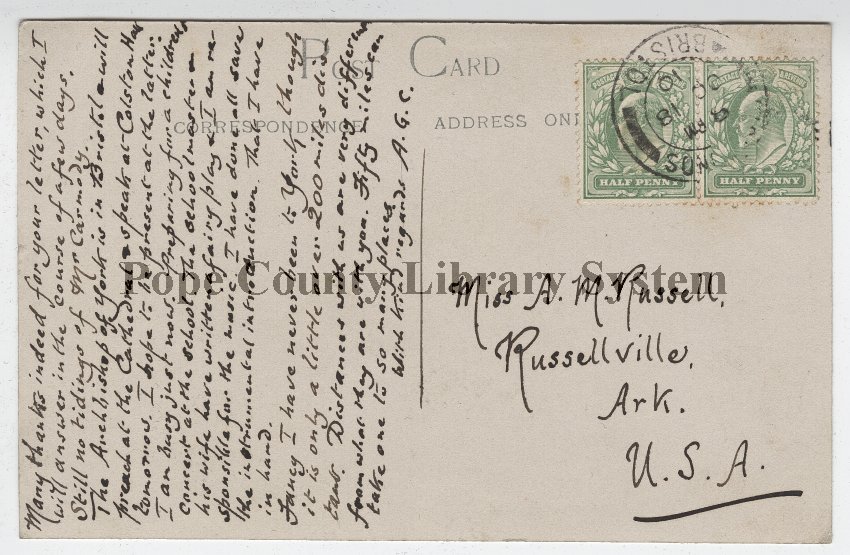 POST CARD
CORRESPONDENCE
ADDRESS ONL
Many thanks indeed for your letter, which I
will answer in the course of a few days.
Still no tidings of Mr Carmody.
The Archbishop of York is in Bristol & will
preach at the Cathedral & speak at Colston Hall
tomorrow. I hope to be present at the latter.
I am busy just now preparing for a children's
concert at the school. The schoolmaster &
his wife have written a fairy play & I am re-
sponsible for the music. I have done all save
the instrumental introduction. That I have
in hand.
Fancy I have never been to York, though
it is only a little over 200 miles dis-
tant. Distances with us are very different
from what they are with you. Fifty miles can
take one to so many places.
With kind regards A. G. C.
Miss A. M. Russell,
Russellville,
Ark.
U. S. A.
HALF PENNY
HALF PENNY
BRIS
OC 18
10
Pope County Library System